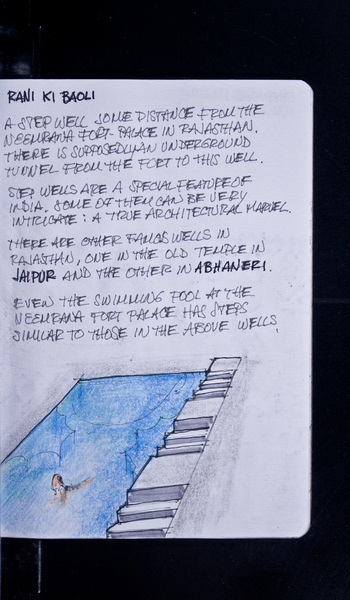 RANI KI BAOLI
A STEP WELL SOME DISTANCE FROM THE
NEEMRANA FORT-PALACE IN RAJASTHAN.
THERE IS SUPPOSEDLY AN UNDERGROUND
TUNNEL FROM THE FORT TO THIS WELL.
STEP WELLS ARE A SPECIAL FEATURE OF
INDIA. SOME OF THEM CAN BE VERY
INTRICATE : A TRUE ARCHITECTURAL MARVEL.
THERE ARE OTHER FAMOUS WELLS IN
RAJASTHAN, ONE IN THE OLD TEMPLE IN
JAIPUR AND THE OTHER IN ABHANERI.
EVEN THE SWIMMING POOL AT THE
NEEMRANA FORT PALACE HAS STEPS
SIMILAR TO THOSE IN THE ABOVE WELLS.